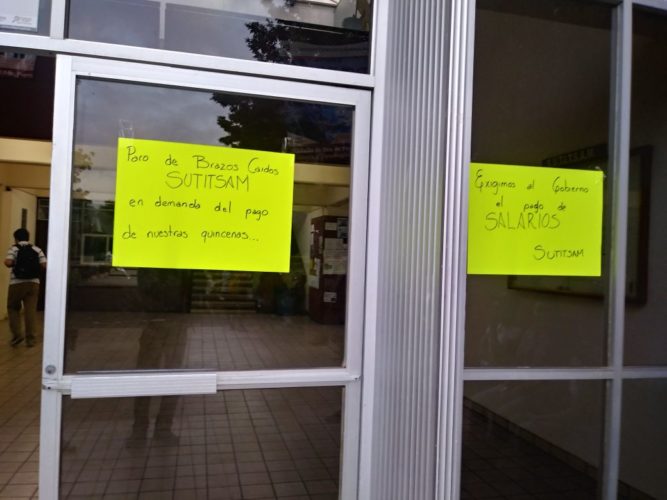 Paro de Brazos Caídos
SUTITSAM
en demanda del pago
de nuestras quincenas...
Exigimos al Gobierno
el pago de
SALARIOS
SUTITSAM